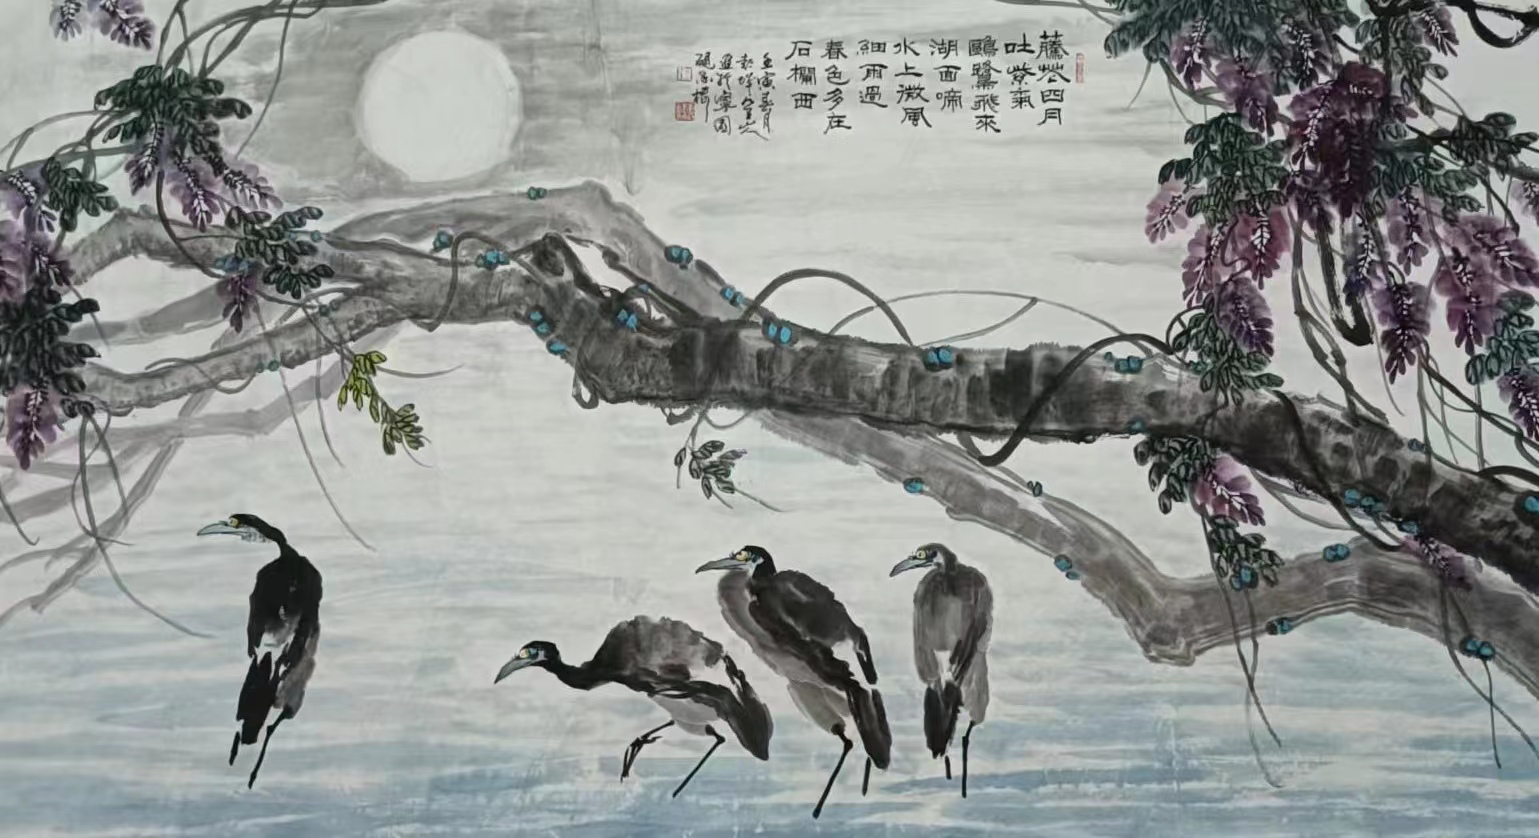 藤花四月
吐紫氣
鷗鷺飛來
湖面啼
水上微風
細雨過
春色多在
石欄西
壬寅春月